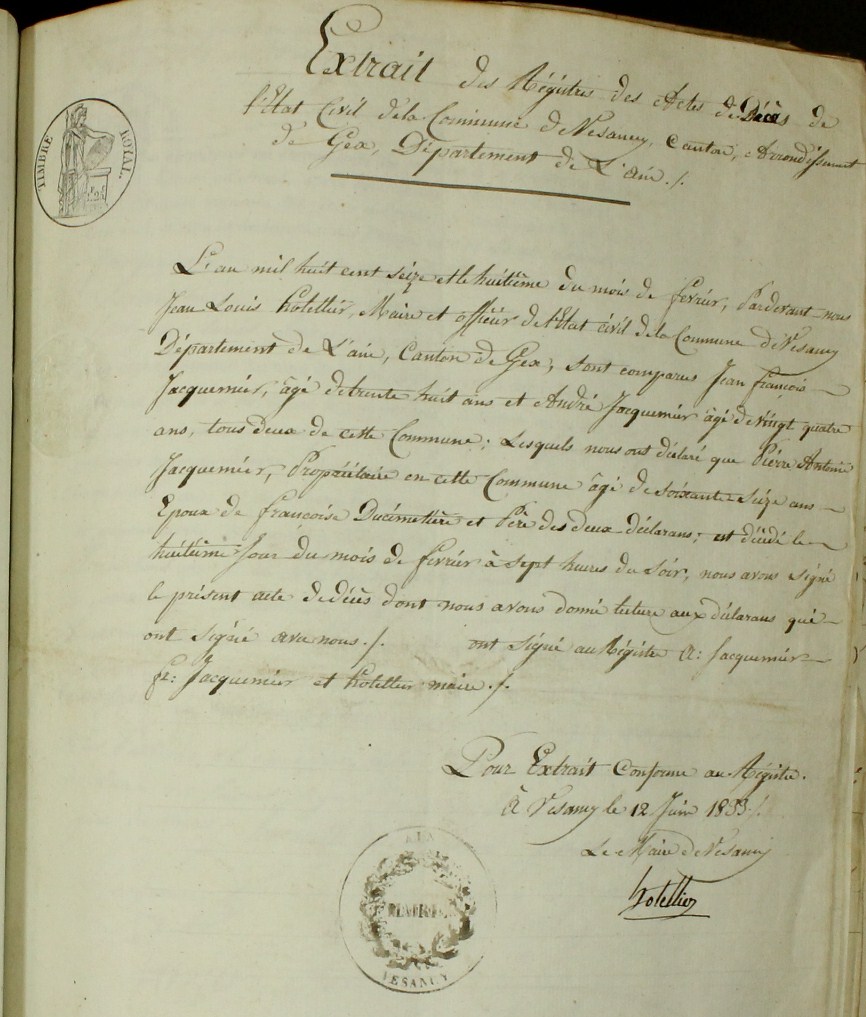 Extrait des Régistres des Actes de Décès de
l'État Civil de la Commune de Vesancy, Canton, Arrondissement
de Gex, Département de L'ain ./.
TIMBRE ROYAL
L'an mil huit cent seize et le huitième du mois de fevrier, Pardevant nous
Jean Louis hotellier, Maire et officier de l'état civil de la Commune de Vesancy
Département de L'ain, Canton de Gex; sont comparus Jean françois
Jacquemier, âgé de trente huit ans et André Jacquemier âgé de vingt quatre
ans, tous deux de cette Commune; Lesquels nous ont déclaré que Pierre Antoine
Jacquemier, Propriétaire en cette Commune âgé de soixante-seize ans
Epoux de françoise Ducimetière et Père des deux déclarans; est décédé le
huitième Jour du mois de fevrier à sept heures du soir, nous avons signé
le présent acte de décès dont nous avons donné lecture aux déclarans qui
ont signé avec nous ./. ont signé au Régistre A: Jacquemier
fs: Jacquemier et hotellier maire ./.
Pour Extrait Conforme au Régistre.
À Vesancy le 12 Juin 1833 ./.
Le Maire de Vesancy
hotellier
MAIRIE
VESANCY